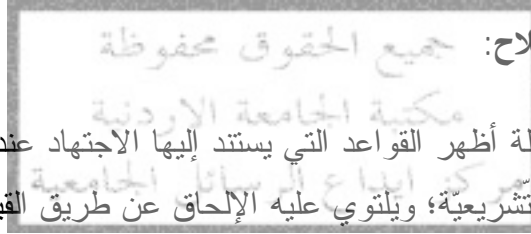 لاح:
جميع الحقوق محفوظة
مكتبة الجامعة الاردنية
لة أظهر القواعد التي يستند إليها الاجتهاد عند
مركز ايداع الرسائل الجامعية
تّشريعيّة؛ ويلتوي عليه الإلحاق عن طريق القي